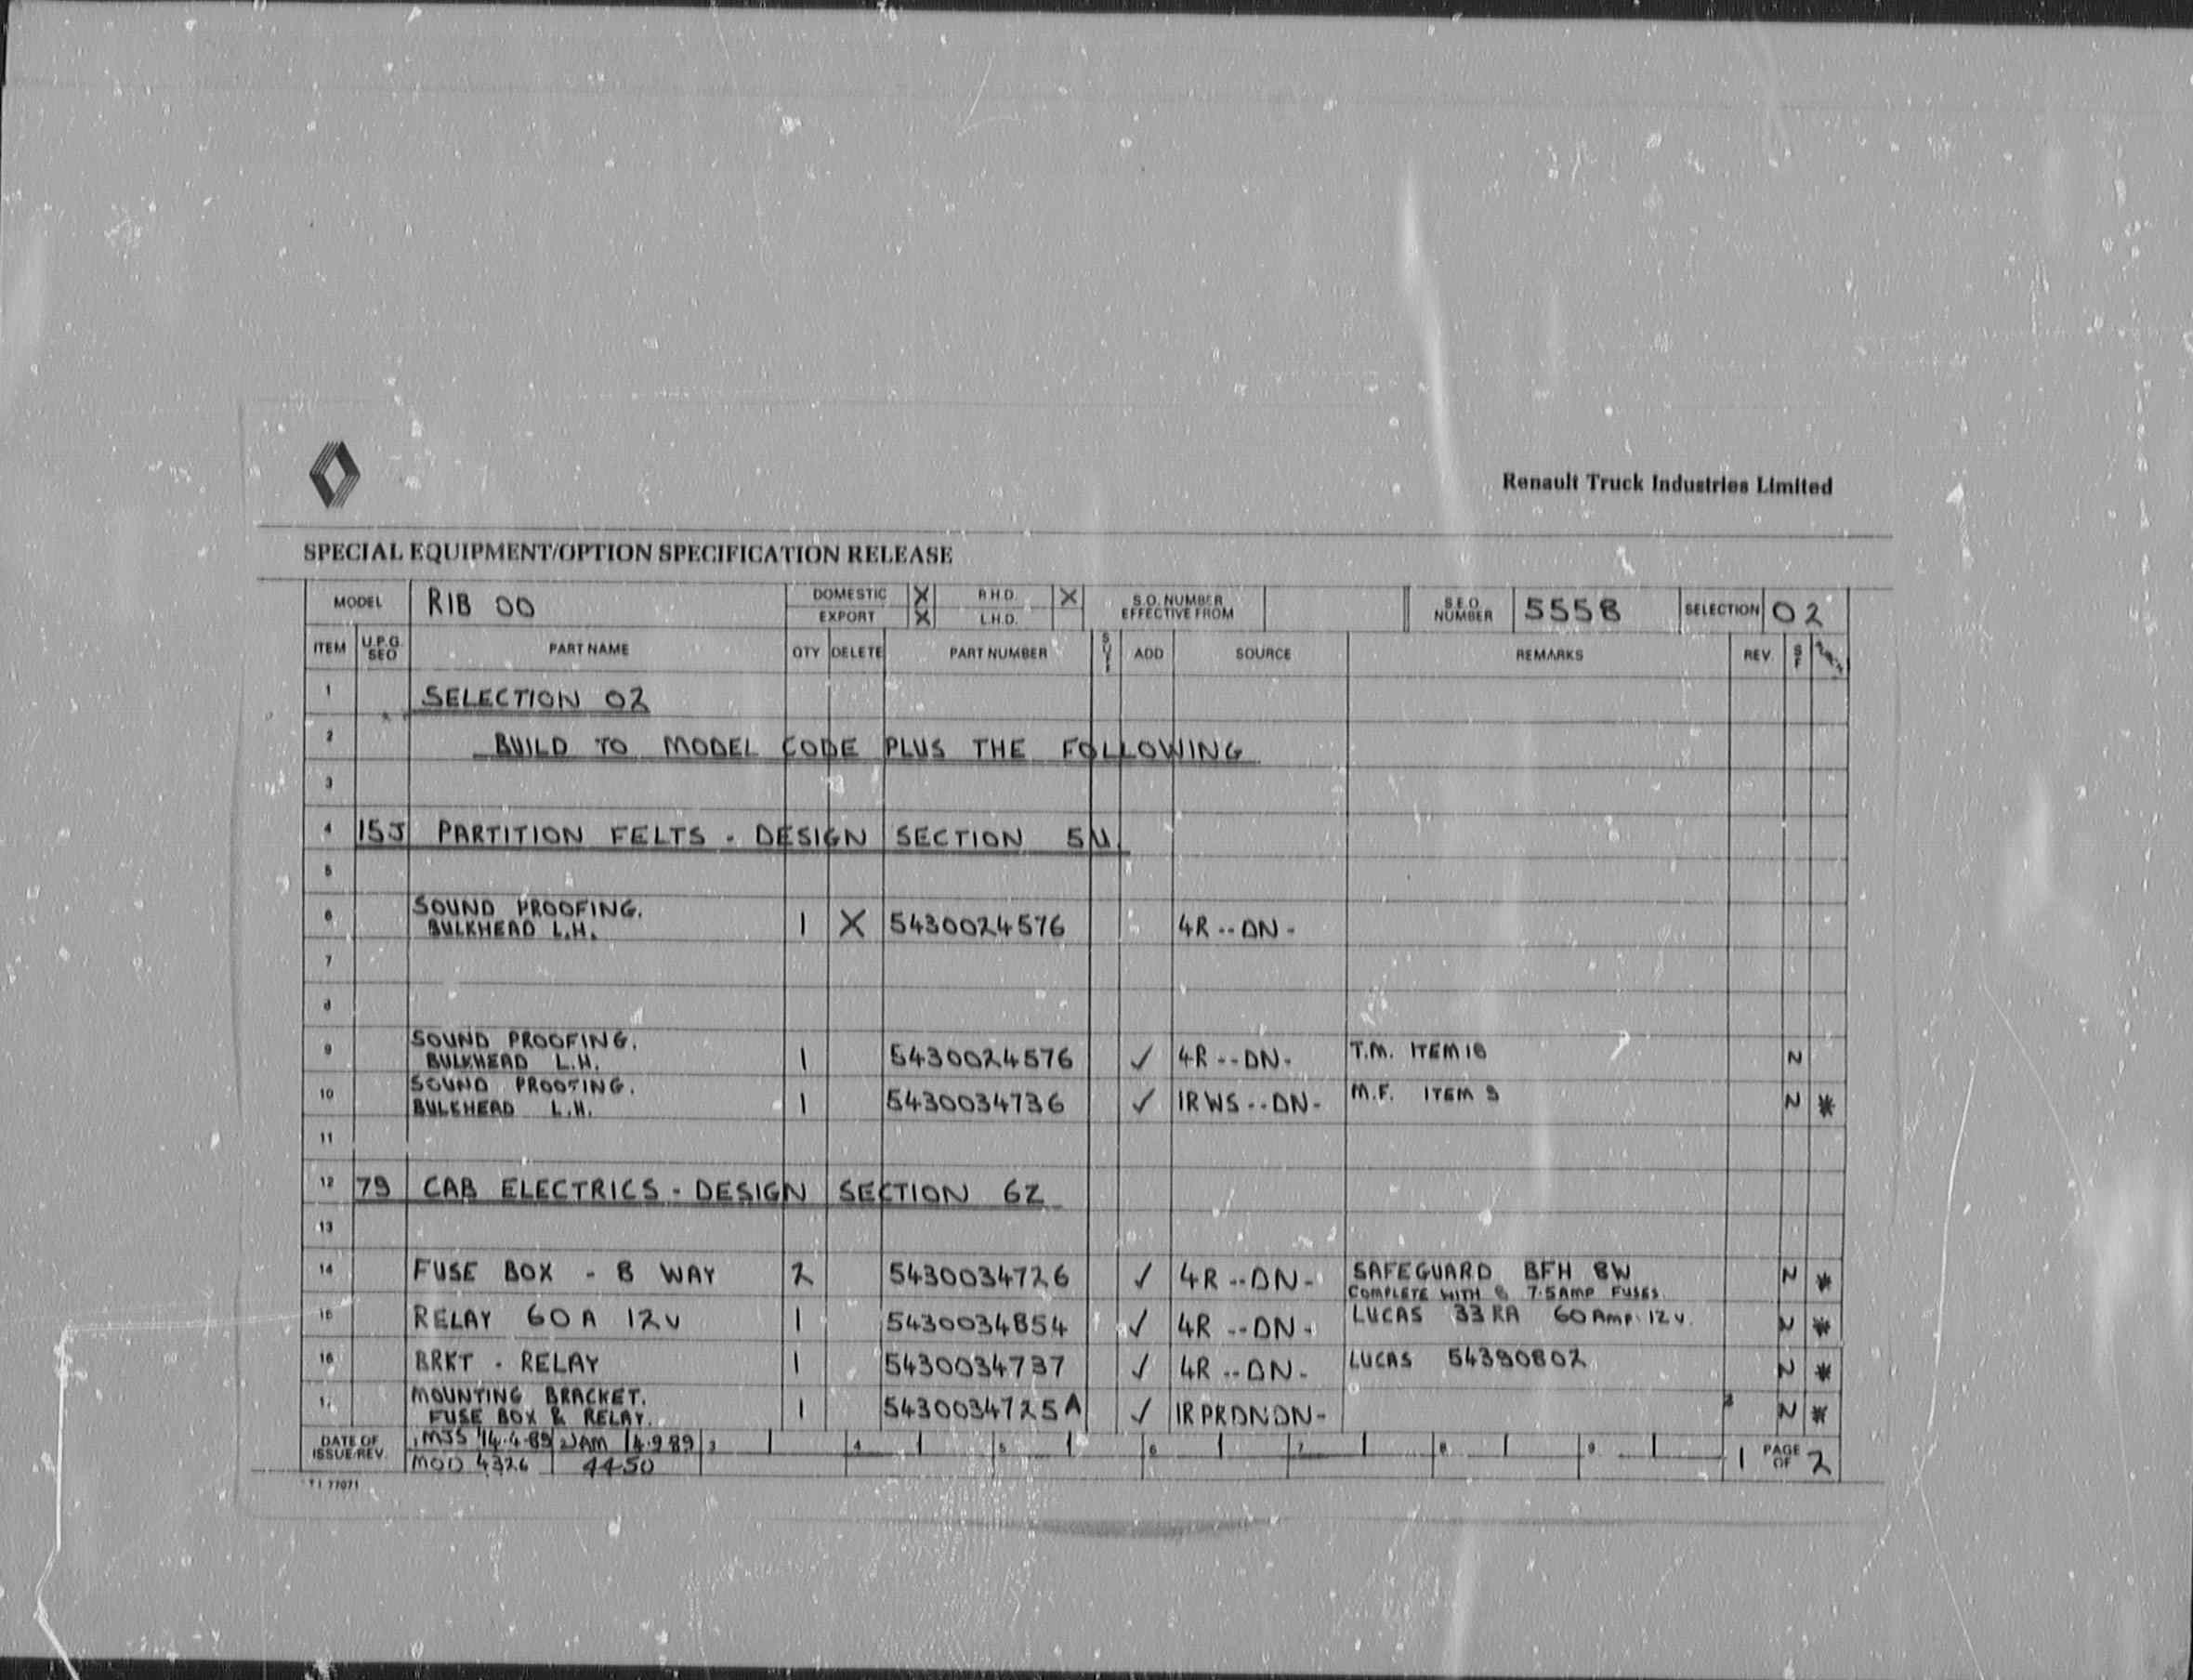 Renault Truck Industries Limited
SPECIAL EQUIPMENT/OPTION SPECIFICATION RELEASE
MODEL RIB 00 DOMESTIC X R.H.D. X S.O. NUMBER EFFECTIVE FROM S.E.O. NUMBER 5558 SELECTION 02
EXPORT X L.H.D.
ITEM U.P.G. SEO PART NAME QTY DELETE PART NUMBER ADD SOURCE REMARKS REV. S F
1 SELECTION 02
2 BUILD TO MODEL CODE PLUS THE FOLLOWING
3
4 15J PARTITION FELTS - DESIGN SECTION 5U
5
6 SOUND PROOFING. BULKHEAD L.H. 1 X 5430024576 4R--DN-
7
8
9 SOUND PROOFING. BULKHEAD L.H. 1 5430024576 ✓ 4R--DN- T.M. ITEM 18 N
10 SOUND PROOFING. BULKHEAD L.H. 1 5430034736 ✓ IRWS--DN- M.F. ITEM 9 N *
11
12 79 CAB ELECTRICS - DESIGN SECTION 6Z
13
14 FUSE BOX - 8 WAY 2 5430034726 ✓ 4R--DN- SAFEGUARD BFH 8W N *
COMPLETE WITH 8 7.5AMP FUSES.
15 RELAY 60A 12V 1 5430034854 ✓ 4R--DN- LUCAS 33RA 60Amp. 12v. N *
16 BRKT - RELAY 1 5430034737 ✓ 4R--DN- LUCAS 54390802 N *
MOUNTING BRACKET. FUSE BOX & RELAY. 1 5430034725A ✓ IRPRDNDN- 2 N *
DATE OF ISSUE/REV. 1 MJS 14.4.89 2 JAM 14.9.89 3 4 5 6 7 8 9 1 PAGE OF 2
MOD 4326 4450
T I 77071